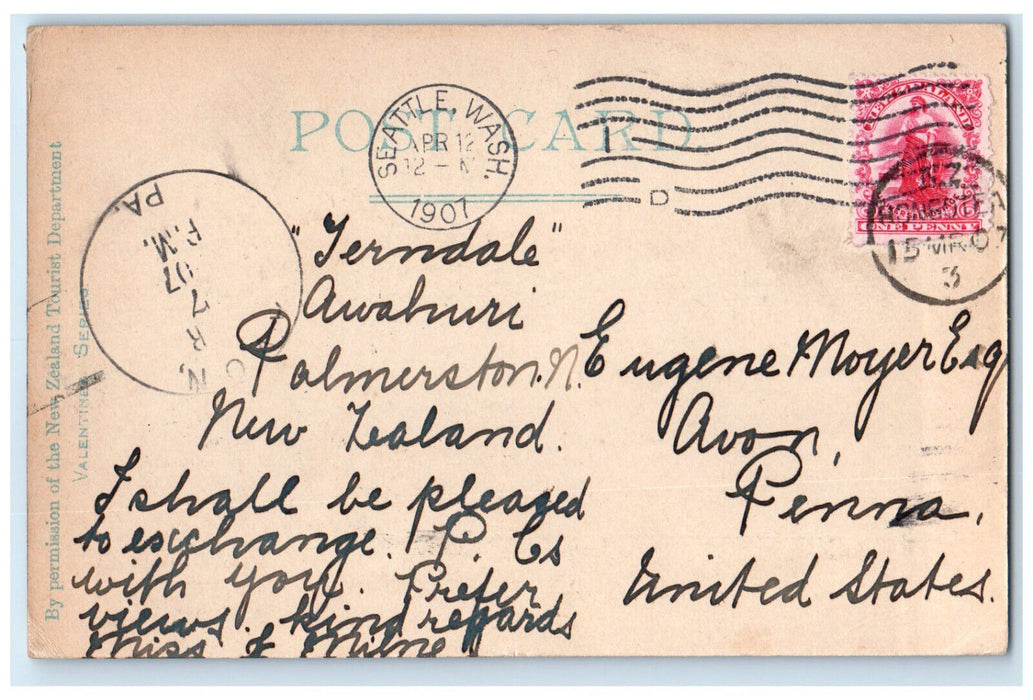 POST CARD.
SEATTLE, WASH.
APR 12
12 - M
1907
D
NEW ZEALAND
ONE PENNY
N.Z.
15 MR 07
3
PA.
P.M.
07
By permission of the New Zealand Tourist Department
VALENTINES SERIES
"Ferndale"
Awahuri
Palmerston. N.
New Zealand.
I shall be pleased
to exchange. P. Cs
with you. Prefer
views. kind regards
Miss J Milne
Eugene Moyer Esq
Avon,
Penna.
United States.